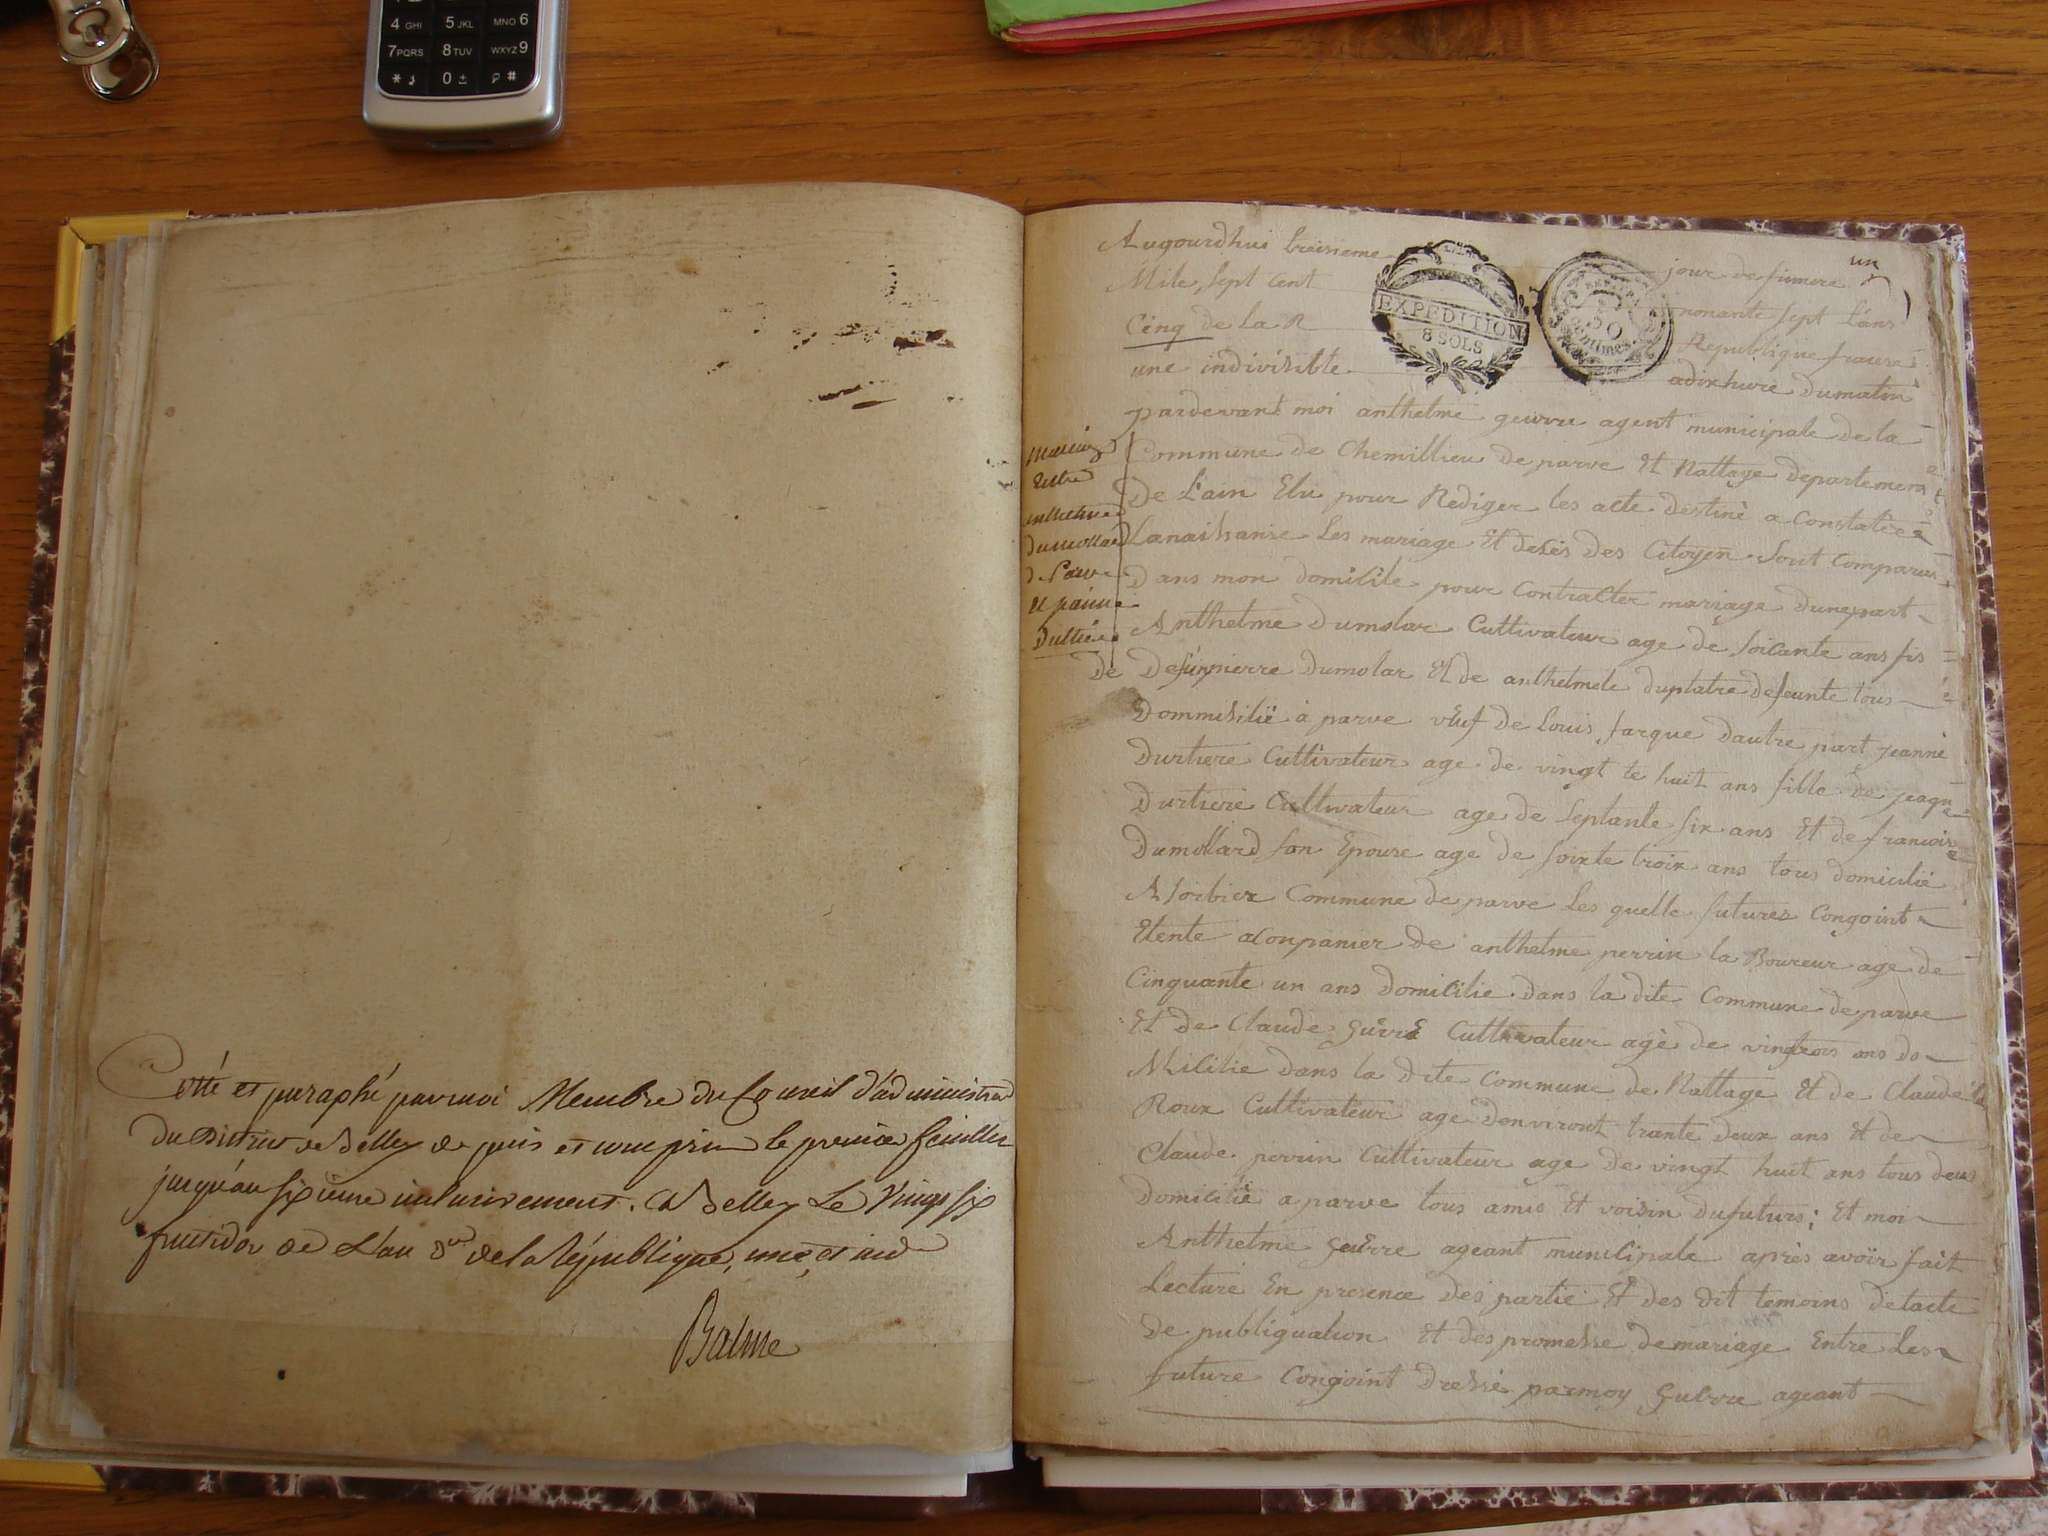 4 GHI 5 JKL MNO 6
7 PQRS 8 TUV WXYZ 9
* 0 ± #
Cotté et paraphé par moi Membre du Conseil d'administra
du District de Belley depuis et compris le premier feuillet
jusqu'au sixieme inclusivement. A Belley Le Vingt six
fructidor de L'an de la République, une, et ind
Balme
un
Augourdhui troisieme jour de fimere
Mile, sept cent nonante sept Lans
Cinq de la R Republique franse
une indivisible adix hure Dumatin
EXPEDITION
8 SOLS
50
Centimes
pardevant moi anthelme geuvre agent municipale de la
Commune de Chemillieu de parve Et Nattage departement
De L'ain Elu pour Rediger les acte destiné a Constatér
Lanaishanse Les mariage Et desés des Citoyen Sont Comparus
Dans mon domicile pour Contracter mariage Dunepart
Anthelme Dumolar Cultivateur age de soicante ans fis
De Defunpierre Dumolar Et de anthelmele duplatre defeunte tous
Dommisilié à parve vEuf de Louis farque dautre part jeanne
Durtiere Cultivateur age de vingt te huit ans fille de jeaque
Durtiere Cultivateur age de Septante six ans Et de francoise
Dumollard son Epouse age de soixte troix ans tous domicilié
A Soibier Commune de parve Les quelle futures Congoint
Etente aConpanier de anthelme perrin la Boureur age de
Cinquante un ans Domicilie dans la dite Commune de parve
Et de Claude guvre Cultivateur agé de vingtrois ans do
Mililie dans la dite Commune de Nattage Et de Claude
Roux Cultivateur age denviront trante deux ans Et de
Claude perrin Cultivateur age de vingt huit ans tous deux
Domicilié a parve tous amis Et voisin dufuturs; Et moi
Anthelme guvre ageant municipale aprés avoir fait
Lecture En presence des partie Et des dit temoins de tacte
de publiquation Et des promesse de mariage Entre Les
future Congoint Dressé parmoy guvre ageant
Mariage
Entre
anthelme
Dumollard
de Parve
et jeanne
Dultiére